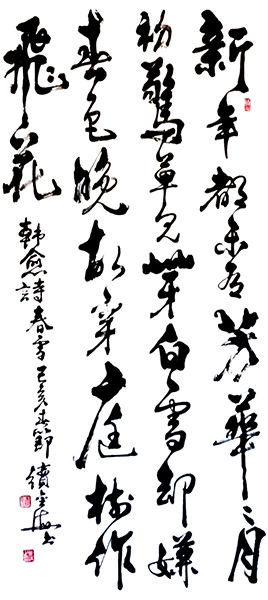 新年都未有芳華二月
初驚草見芽白雪却嫌
春色晚故穿庭樹作
飛花
韓愈詩春雪己亥春節